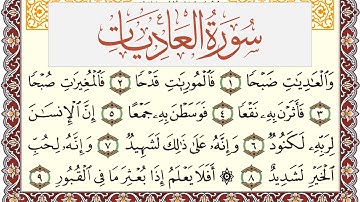 سُورَةُ العَادِيَاتِ
وَٱلۡعَٰدِيَٰتِ ضَبۡحٗا ١ فَٱلۡمُورِيَٰتِ قَدۡحٗا ٢ فَٱلۡمُغِيرَٰتِ صُبۡحٗا
٣ فَأَثَرۡنَ بِهِۦ نَقۡعٗا ٤ فَوَسَطۡنَ بِهِۦ جَمۡعًا ٥ إِنَّ ٱلۡإِنسَٰنَ
لِرَبِّهِۦ لَكَنُودٞ ٦ وَإِنَّهُۥ عَلَىٰ ذَٰلِكَ لَشَهِيدٞ ٧ وَإِنَّهُۥ لِحُبِّ
ٱلۡخَيۡرِ لَشَدِيدٌ ٨ ۞ أَفَلَا يَعۡلَمُ إِذَا بُعۡثِرَ مَا فِي ٱلۡقُبُورِ ٩